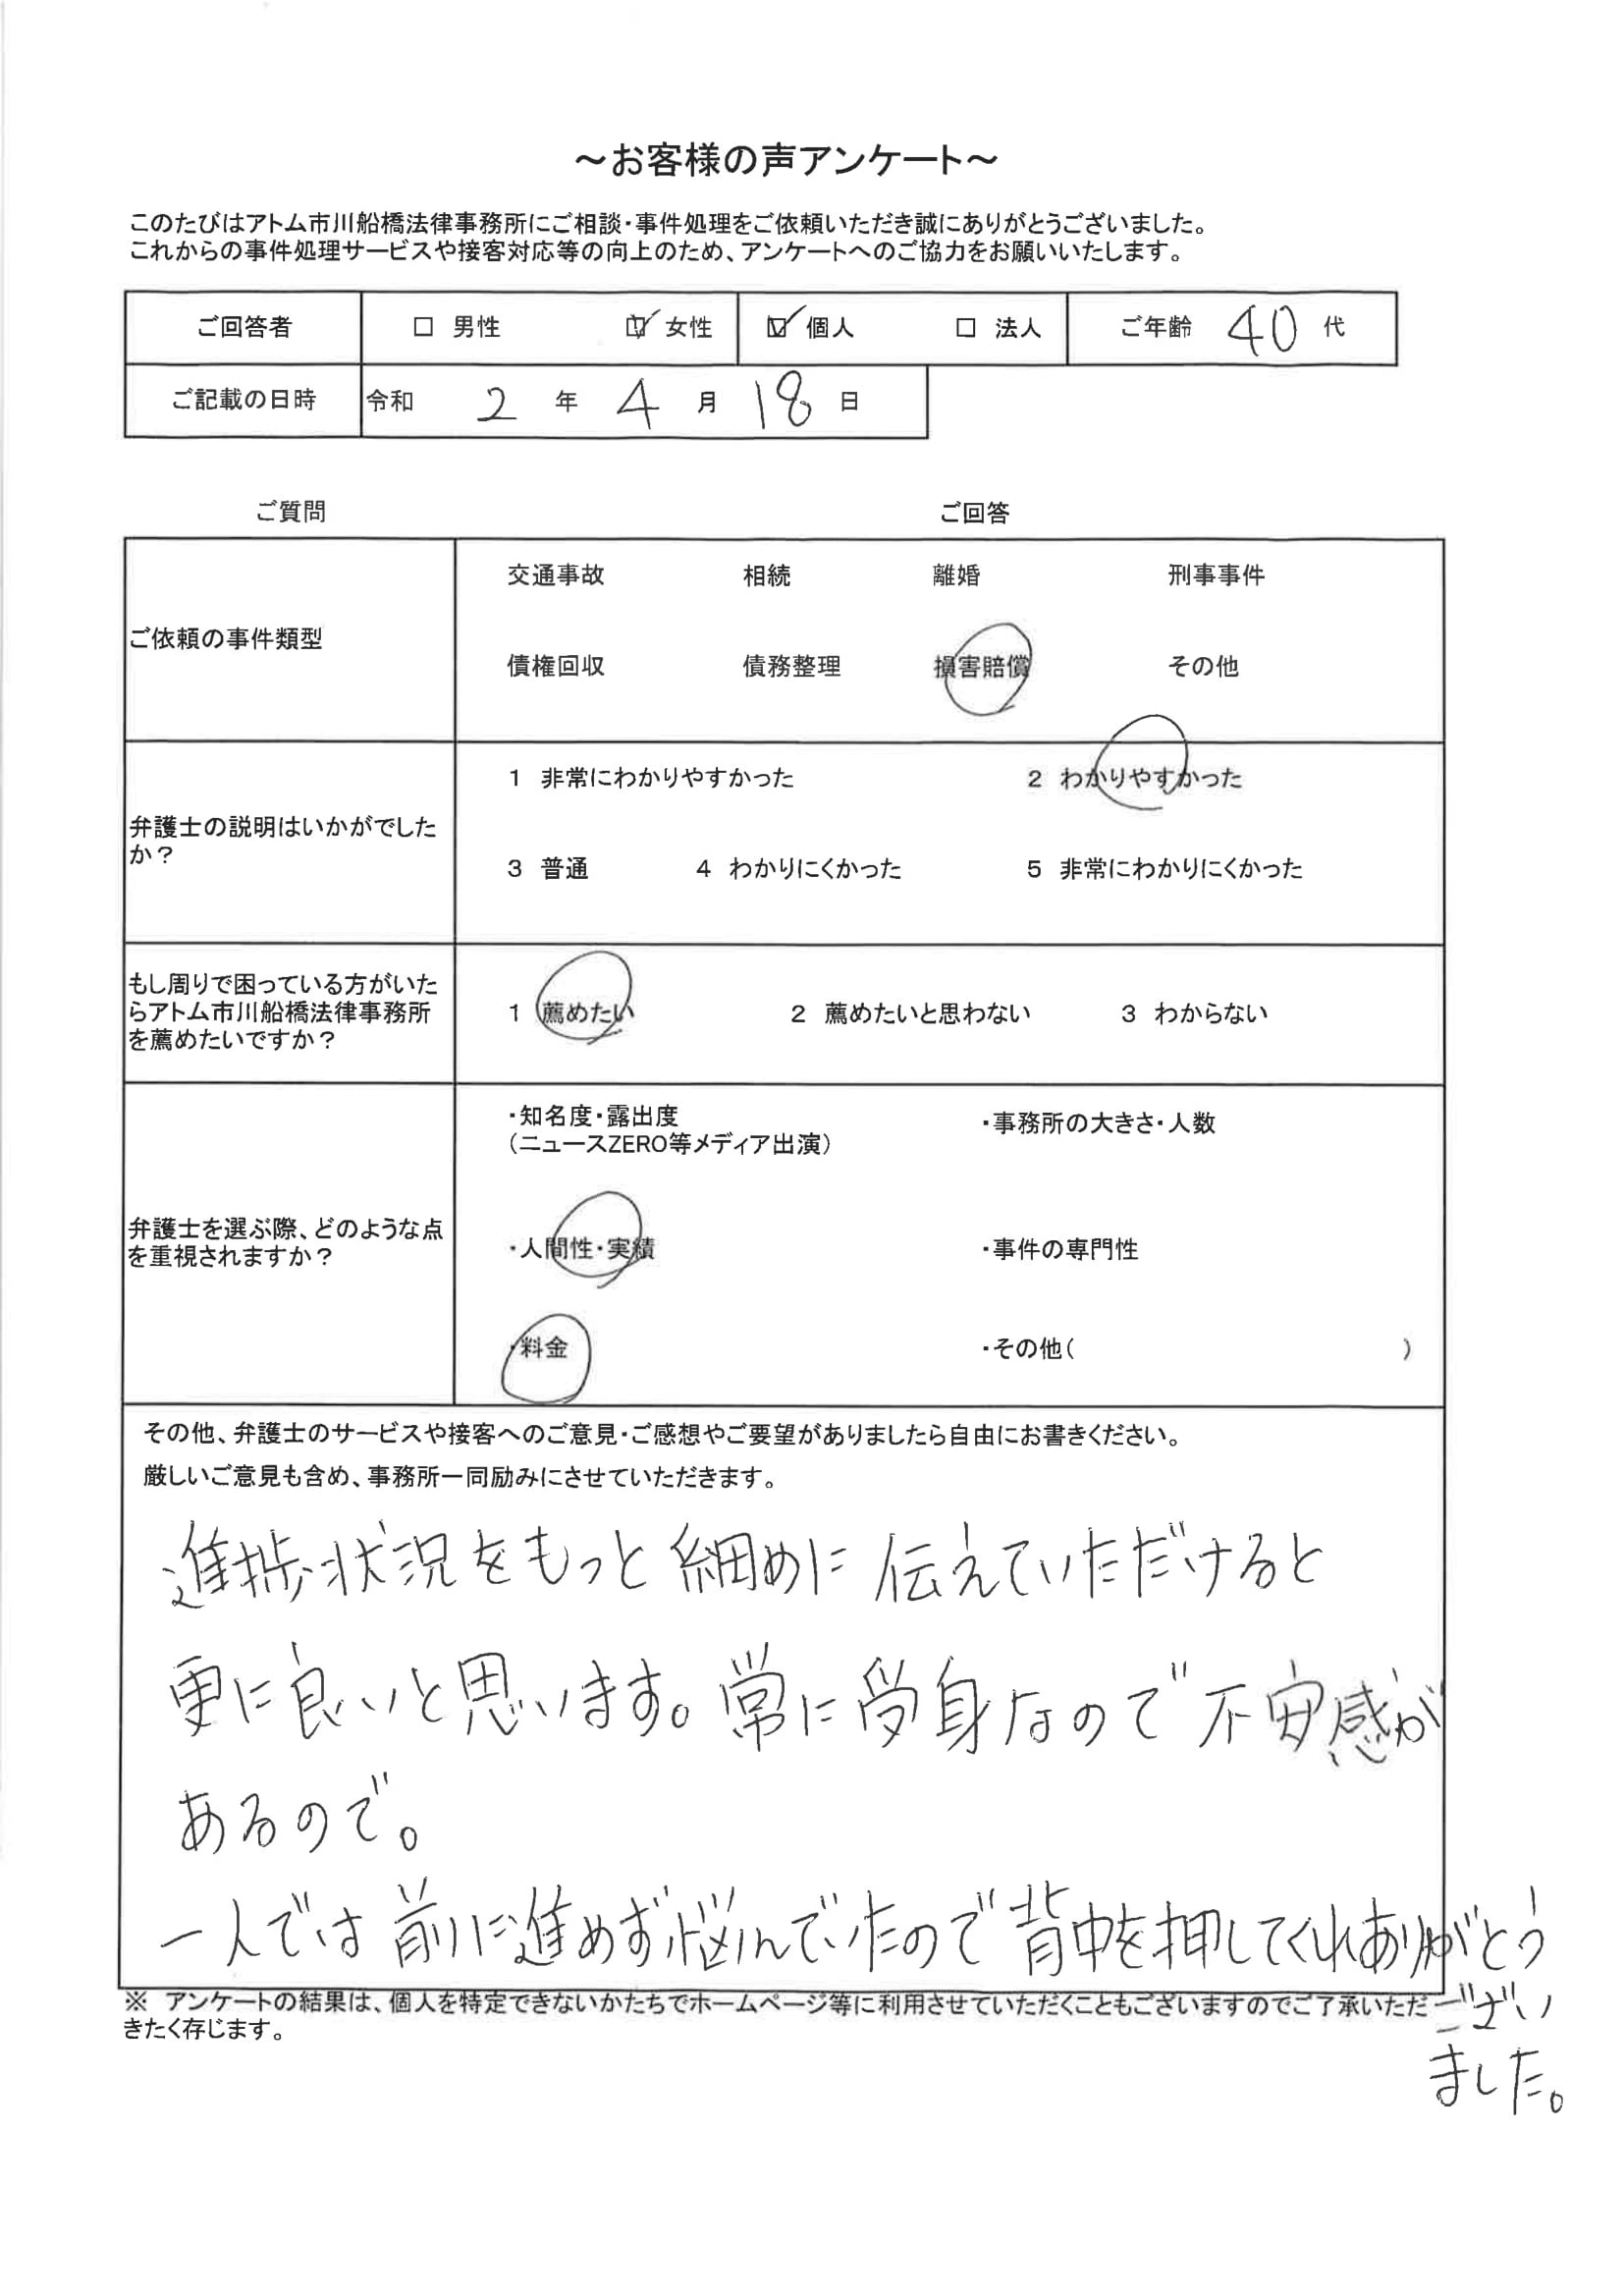 ～お客様の声アンケート～
このたびはアトム市川船橋法律事務所にご相談・事件処理をご依頼いただき誠にありがとうございました。
これからの事件処理サービスや接客対応等の向上のため、アンケートへのご協力をお願いいたします。
ご回答者 □ 男性 ☑ 女性 ☑ 個人 □ 法人 ご年齢 40 代
ご記載の日時 令和 2 年 4 月 18 日
ご質問 ご回答
ご依頼の事件類型
交通事故 相続 離婚 刑事事件
債権回収 債務整理 損害賠償 その他
弁護士の説明はいかがでした
か？
1 非常にわかりやすかった 2 わかりやすかった
3 普通 4 わかりにくかった 5 非常にわかりにくかった
もし周りで困っている方がいた
らアトム市川船橋法律事務所
を薦めたいですか？
1 薦めたい 2 薦めたいと思わない 3 わからない
弁護士を選ぶ際、どのような点
を重視されますか？
・知名度・露出度
（ニュースZERO等メディア出演）
・事務所の大きさ・人数
・人間性・実績 ・事件の専門性
・料金 ・その他（ ）
その他、弁護士のサービスや接客へのご意見・ご感想やご要望がありましたら自由にお書きください。
厳しいご意見も含め、事務所一同励みにさせていただきます。
進捗状況をもっと細めに伝えていただけると
更に良いと思います。常に受身なので不安感が
あるので。
一人では前に進めず悩んでいたので背中を押してくれありがとう
ござい
ました。
※ アンケートの結果は、個人を特定できないかたちでホームページ等に利用させていただくこともございますのでご了承いただ
きたく存じます。